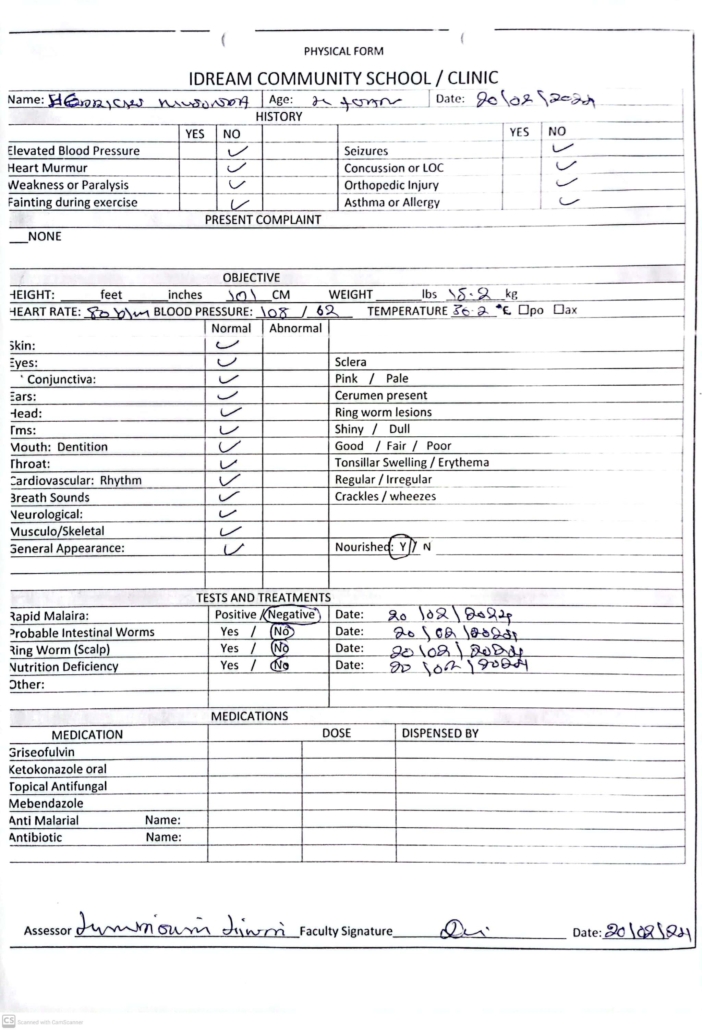 PHYSICAL FORM
IDREAM COMMUNITY SCHOOL / CLINIC
Name: Age: Date: 20/02/2024
HISTORY
YES NO YES NO
Elevated Blood Pressure ✓ Seizures ✓
Heart Murmur ✓ Concussion or LOC ✓
Weakness or Paralysis ✓ Orthopedic Injury ✓
Fainting during exercise ✓ Asthma or Allergy ✓
PRESENT COMPLAINT
___NONE
OBJECTIVE
HEIGHT: ______ feet ______ inches 101 CM WEIGHT ______ lbs 15.2 kg
HEART RATE: 80 b/m BLOOD PRESSURE: 108 / 62 TEMPERATURE 36.2 °C ☐po ☐ax
Normal Abnormal
Skin: ✓
Eyes: ✓ Sclera
Conjunctiva: ✓ Pink / Pale
Ears: ✓ Cerumen present
Head: ✓ Ring worm lesions
Tms: ✓ Shiny / Dull
Mouth: Dentition ✓ Good / Fair / Poor
Throat: ✓ Tonsillar Swelling / Erythema
Cardiovascular: Rhythm ✓ Regular / Irregular
Breath Sounds ✓ Crackles / wheezes
Neurological: ✓
Musculo/Skeletal ✓
General Appearance: ✓ Nourished: Y / N
TESTS AND TREATMENTS
Rapid Malaira: Positive / Negative Date: 20/02/2024
Probable Intestinal Worms Yes / No Date: 20/02/2024
Ring Worm (Scalp) Yes / No Date: 20/02/2024
Nutrition Deficiency Yes / No Date: 20/02/2024
Other:
MEDICATIONS
MEDICATION DOSE DISPENSED BY
Griseofulvin
Ketokonazole oral
Topical Antifungal
Mebendazole
Anti Malarial Name:
Antibiotic Name:
Assessor Faculty Signature Date: 20/02/24
CS Scanned with CamScanner